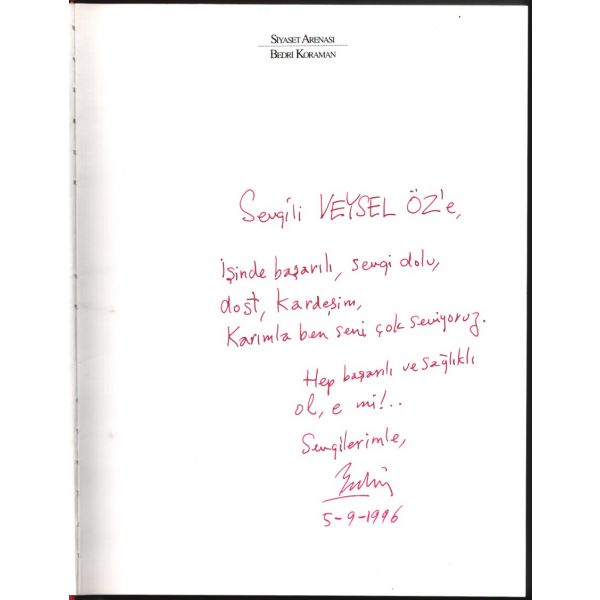 SİYASET ARENASI
BEDRİ KORAMAN
Sevgili VEYSEL ÖZ'e,
İşinde başarılı, sevgi dolu,
dost, kardeşim,
Karımla ben seni çok seviyoruz.
Hep başarılı ve sağlıklı
ol, e mi!..
Sevgilerimle,
Bedri
5-9-1996